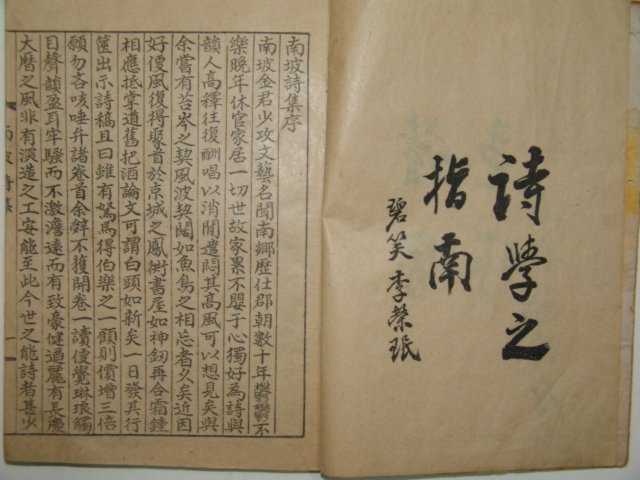 詩學之
指南
碧笑 李榮珉
南坡詩集序
南坡金君少攻文藝名聞南鄉歷仕郡朝數十年鬱鬱不
樂晚年休官家居一切世故家累不嬰于心獨好為詩與
韻人高釋往復酬唱以消閒遣悶其高風可以想見矣與
余嘗有苔岑之契風波契闊如魚鳥之相忘者久矣近因
好便風復得聚首於京城之鳳街書屋如神釰再合霜鍾
相應抵掌道舊把酒論文可謂白頭如新矣一日發其行
篋出示詩稿且曰雖有駑馬得伯樂之一顧則價增三倍
願勿吝咳唾弁諸卷首余辤不獲開卷一讀便覺琳琅觸
目聲韻盈耳牢騷而不激澹遠而有致豪健過麗有長慶
大曆之風非有深造之工安能至此今世之能詩者甚少
南坡詩集
一